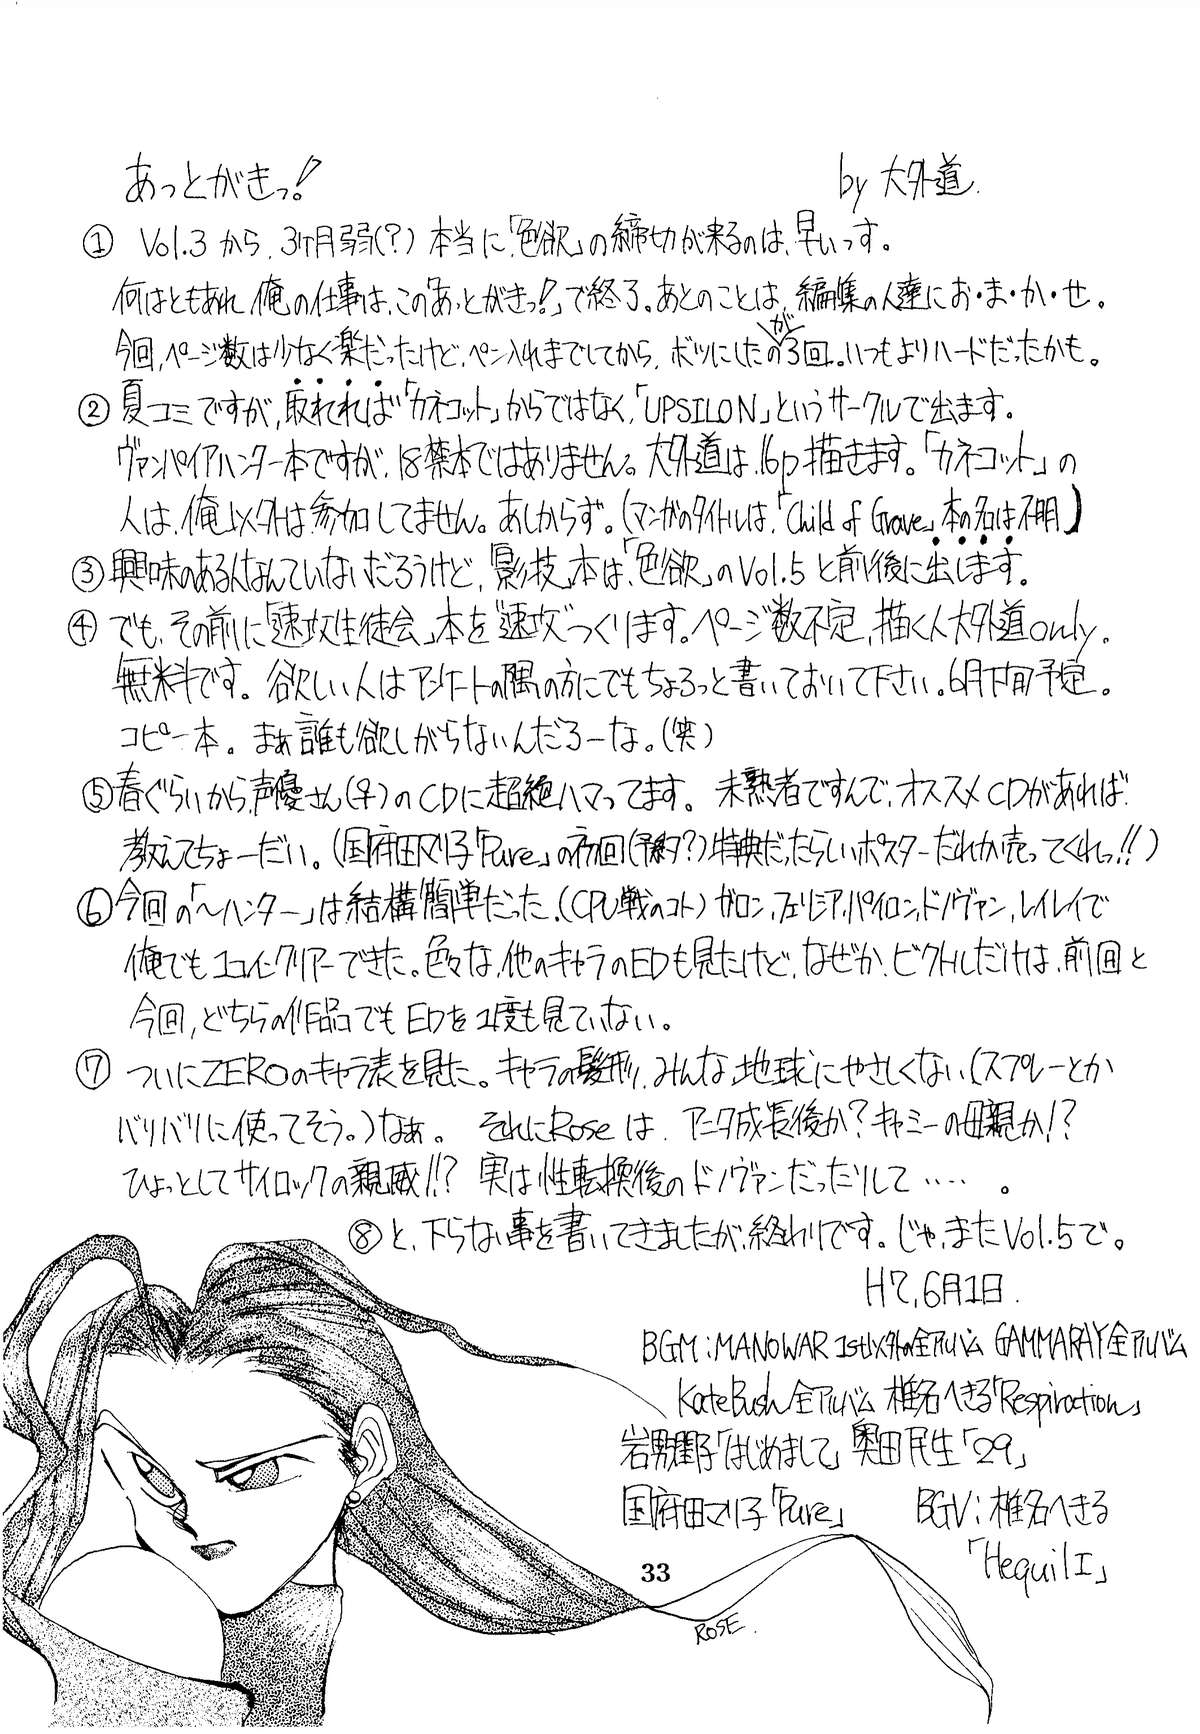 あっとがきっ! by 大外道.
① Vol.3 から、3ヶ月弱(?) 本当に「色欲」の締切が来るのは、早いっす。
何はともあれ、俺の仕事は、この「あっとがきっ!」で終了。あとのことは、編集の人達にお・ま・か・せ。
今回、ページ数は少なく楽だったけど、ペン入れまでしてから、ボツにしたのが3回。いつもよりハードだったかも。
② 夏コミですが、取れれば「カネコット」からではなく、「UPSILON」というサークルで出ます。
ヴァンパイアハンター本ですが、18禁本ではありません。大外道は、16p描きます。「カネコット」の
人は、俺以外は参加してません。あしからず。(マンガのタイトルは、「Child of Grave」本の名は不明)
③ 興味のある人なんていないだろうけど、「影技」本は、「色欲」のVol.5と前後に出します。
④ でも、その前に「速攻生徒会」本を“速攻”つくります。ページ数不定、描く人大外道only。
無料です。欲しい人はアンケートの隅の方にでもちょろっと書いておいて下さい。6月下旬予定。
コピー本。まぁ誰も欲しがらないんだろーな。(笑)
⑤ 春ぐらいから、声優さん(♀)のCDに超絶ハマってます。未熟者ですんで、オススメCDがあれば、
教えてちょーだい。(国府田マリ子「Pure」の初回(予約?)特典だったらしいポスターだれか売ってくれっ!!)
⑥ 今回の「〜ハンター」は結構簡単だった。(CPU戦のコト) ガロン,フェリシア,パイロン,ドノヴァン,レイレイで
俺でも1コインクリアーできた。色々な、他のキャラのEDも見たけど、なぜか、ビクトルだけは、前回と
今回、どちらの作品でもEDを1度も見ていない。
⑦ ついにZEROのキャラ表を見た。キャラの髪形、みんな、地球にやさしくない(スプレーとか
バリバリに使ってそう。)なぁ。それにRoseは、アニタ成長後か?キャミーの母親か!?
ひょっとしてサイロックの親戚!!?実は性転換後のドノヴァンだったりして……。
⑧ と、下らない事を書いてきましたが、終わりです。じゃ、またVol.5で。
H7,6月1日.
BGM:MANOWAR 1st以外の全アルバム GAMMARAY全アルバム
KateBush全アルバム 椎名へきる「Respiraction」
岩男潤子「はじめまして」奥田民生「29」
国府田マリ子「Pure」 BGV:椎名へきる
「Hequil I」
33
ROSE.